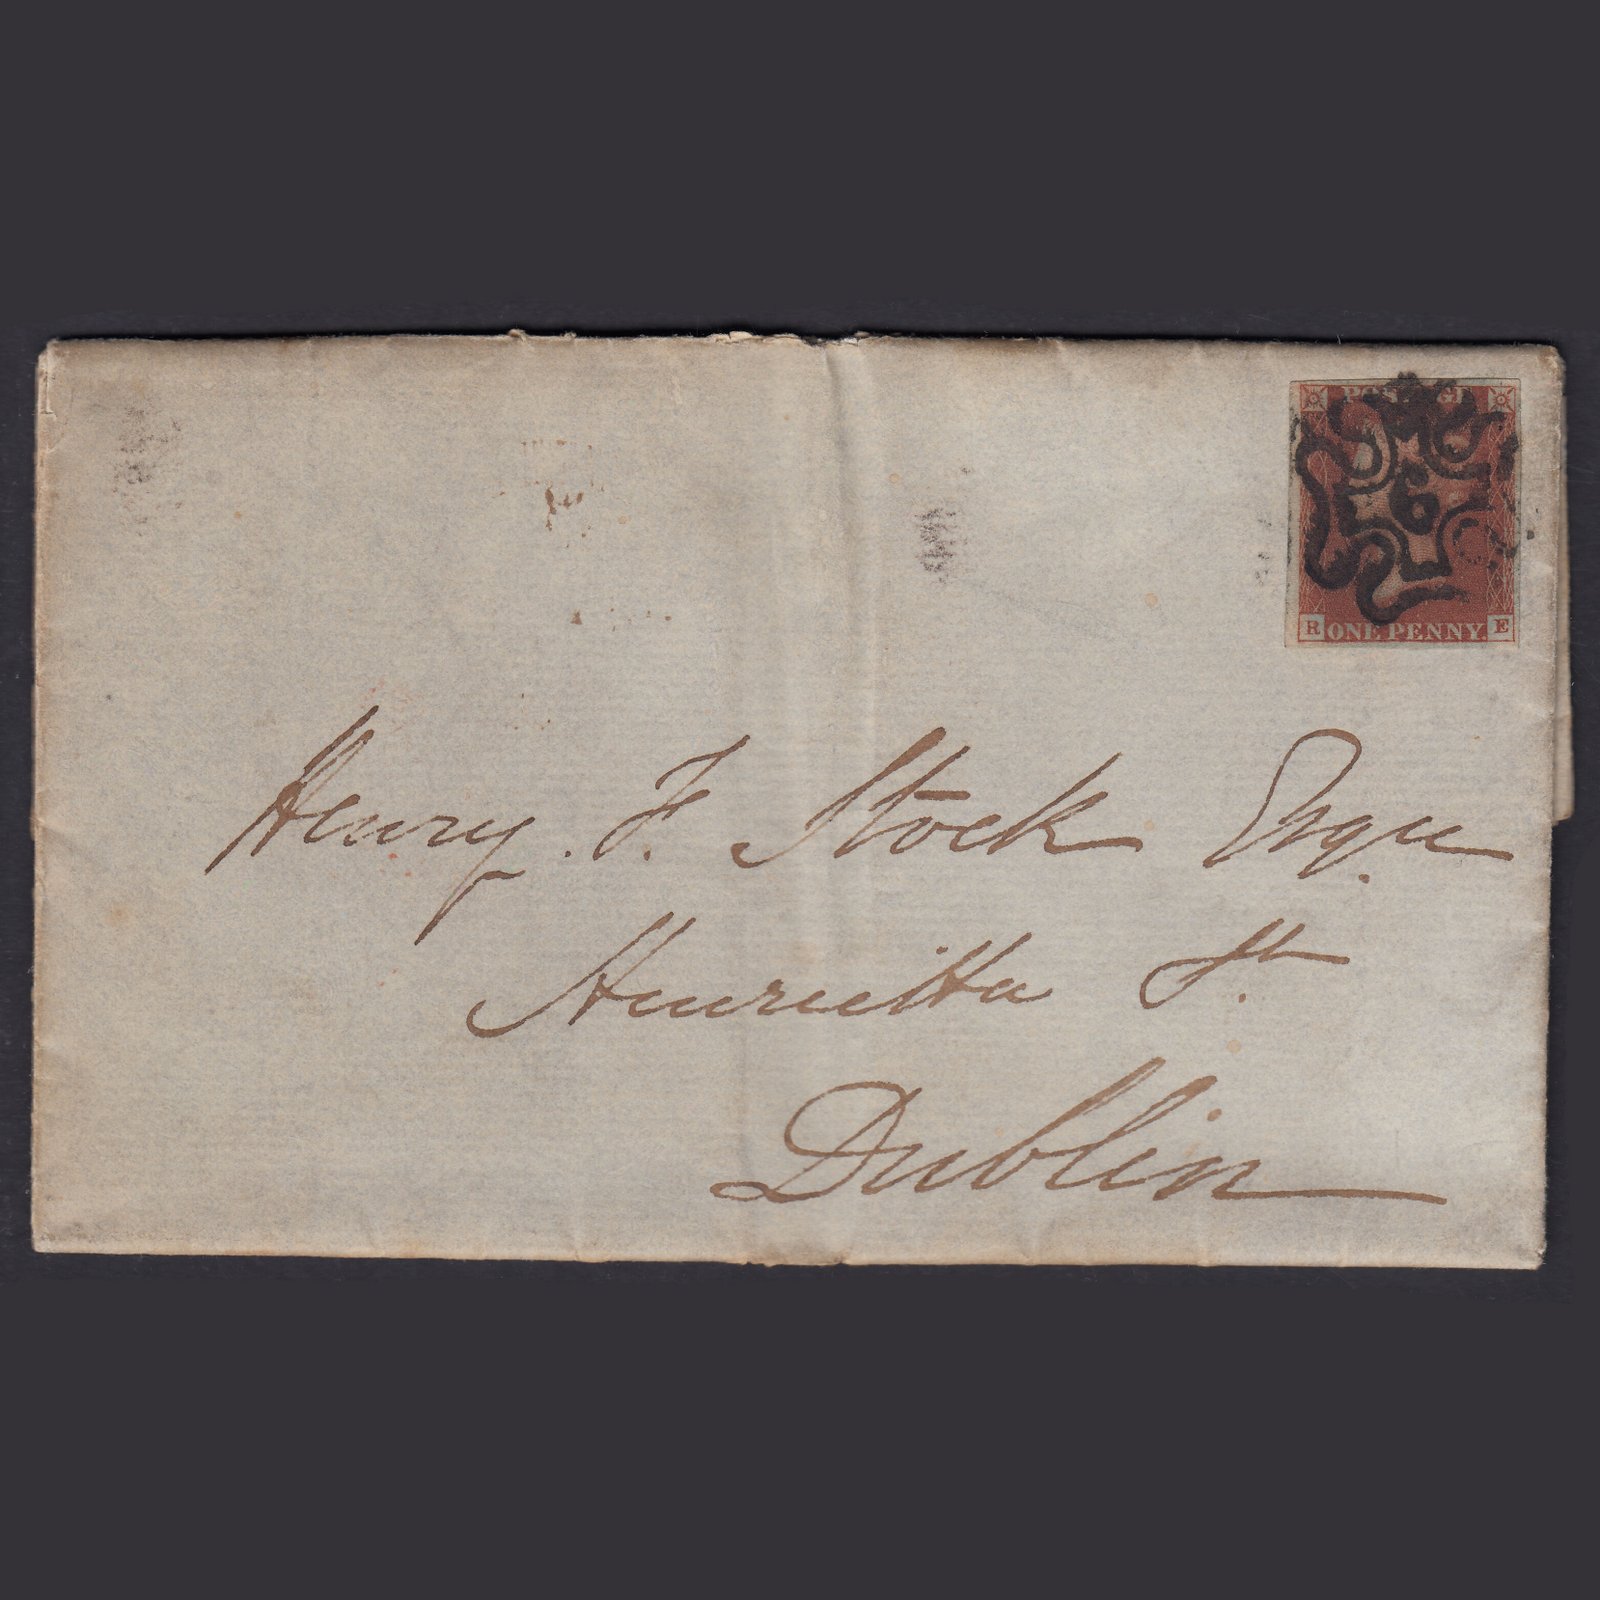 POSTAGE
6
R ONE PENNY. E
Henry. F. Stock Esqre
Henrietta St.
Dublin